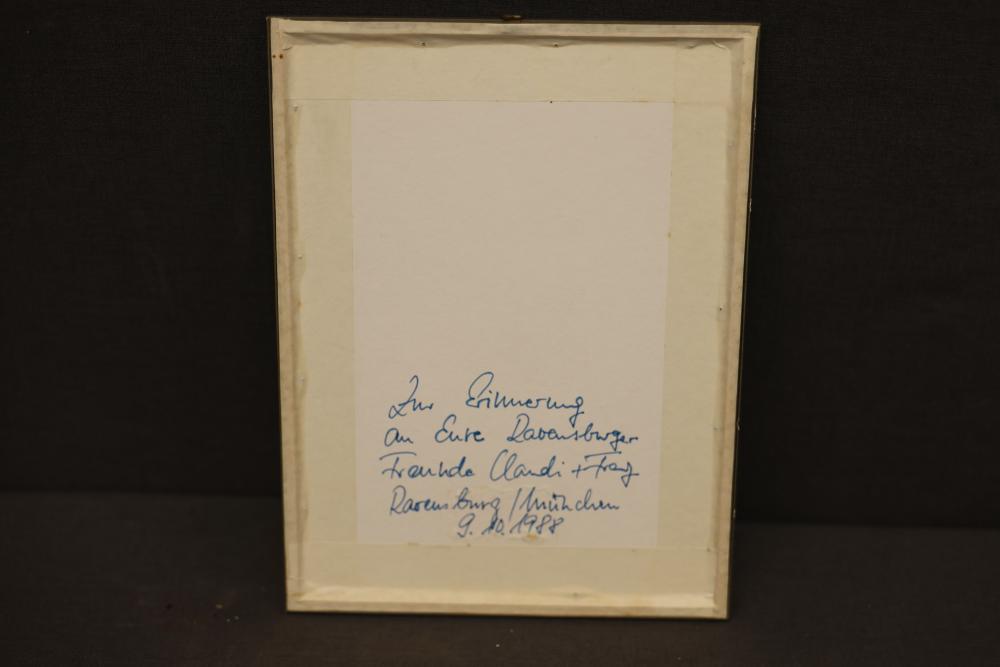 Zur Erinnerung
an Eure Ravensburger
Freunde Claudi + Franz
Ravensburg / München
9.10.1988